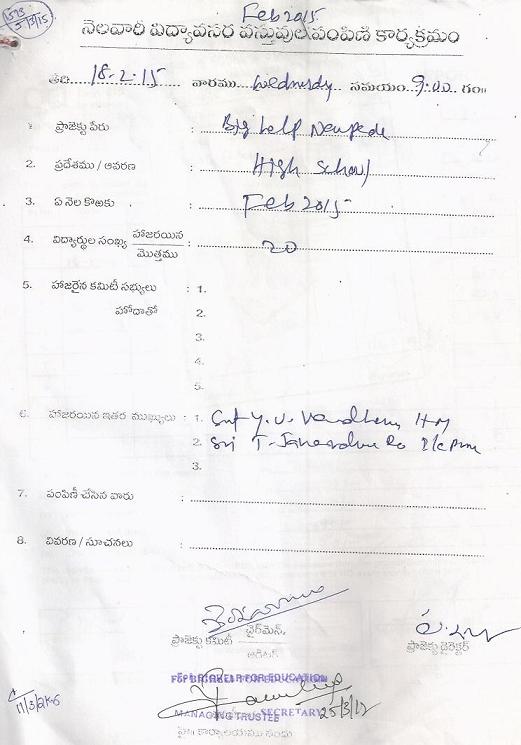 1593
5/3/15
Feb 2015
నెలవారీ విద్యావసర వస్తువుల పంపిణీ కార్యక్రమం
తేది 18-2-15 వారము Wednesday సమయం 9.00 గం॥
1. ప్రాజెక్టు పేరు : Big help
2. ప్రదేశము / ఆవరణ : High School
3. ఏ నెల కొఱకు : Feb 2015
4. విద్యార్థుల సంఖ్య హాజరయిన / మొత్తము : 20
5. హాజరైన కమిటీ సభ్యులు : 1.
హోదాతో 2.
3.
4.
5.
6. హాజరయిన ఇతర ముఖ్యులు : 1. Smt Y. V. HM
2. Sri T. Ro
3.
7. పంపిణీ చేసిన వారు :
8. వివరణ / సూచనలు :
ప్రాజెక్టు కమిటీ ఛైర్మెన్,
ఆడిటర్
ప్రాజెక్టు డైరెక్టర్
For BIGHELP FOR EDUCATION
MANAGING TRUSTEE
SECRETARY